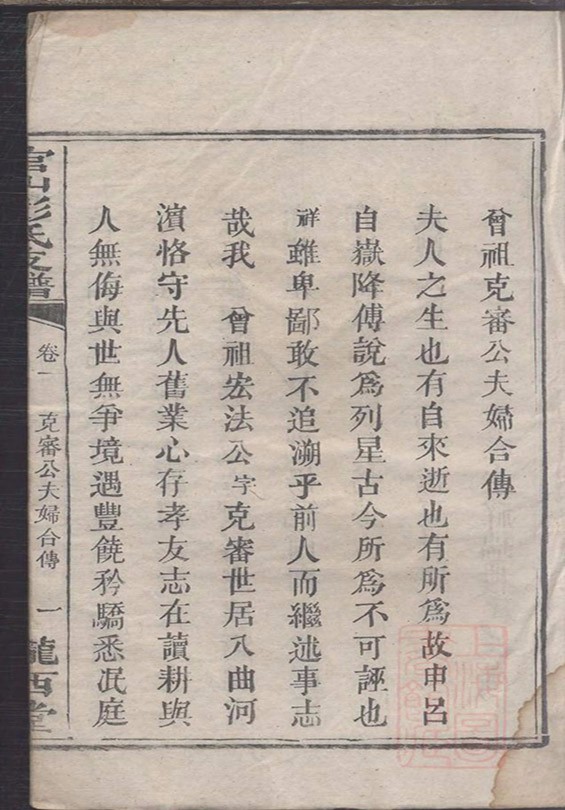 曾祖克審公夫婦合傳
夫人之生也有自來逝也有所爲故申呂
自嶽降傅說爲列星古今所爲不可誣也
祥雖卑鄙敢不追溯乎前人而繼述事志
哉我 曾祖宏法公字克審世居八曲河
濱恪守先人舊業心存孝友志在讀耕與
人無侮與世無爭境遇豐饒矜驕悉泯庭
官山彭氏支譜
卷一 克審公夫婦合傳 一 隴西堂